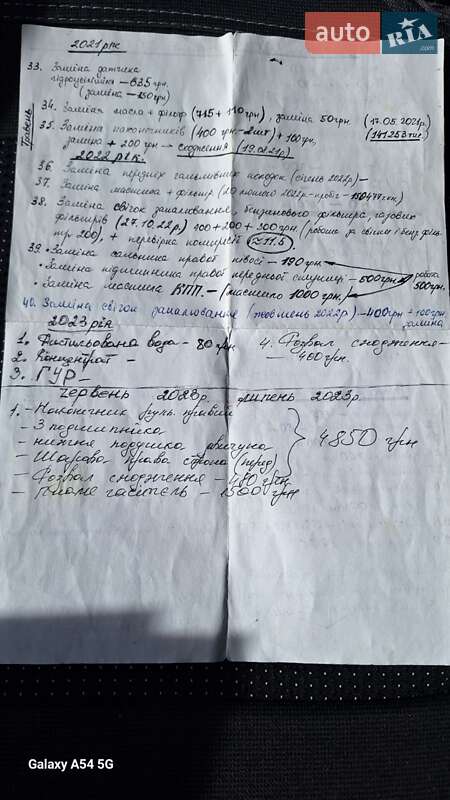 auto RIA.com
2021 рік
33. Заміна датчика
гідроцилінdра – 635 грн.
(заміна – 150 грн)
34. Заміна масло + фільтр (715 + 110 грн), заміна 50 грн. (17.05.2021р)
Травень
35. Заміна наконечників (400 грн – 2шт) + 100 грн, (141253 тис)
заміна + 200 грн → сходження (19.02.21р)
2022 рік.
36. Заміна передніх гальмівних колодок (січень 2022р) –
37. Заміна масла + фільтр (20 лютого 2022р – пробіг – 150477 км)
38. Заміна свічок запалювання, бензинового фільтра, газових
фільтрів (27.10.22р) 100 + 200 + 300 грн (робота за свічки і бенз. філь
тр 200), + перевірка компресії (≈11.5)
39. • Заміна сальника правої півосі – 190 грн
• Заміна підшипника правої передньої ступиці – 500 грн
робота
500 грн.
• Заміна масла КПП. – (масло 1000 грн)
40. Заміна свічок запалювання (жовтень 2022р) – 400 грн + 100 грн
заміна
2023 рік
1. Дистильована вода – 80 грн
2. Концентрат –
3. ГУР –
4. Розвал сходження –
– 400 грн.
Червень 2023р. липень 2023р.
1. – Наконечник рульв. правий
– 3 подшипніка
– нижня подушка двигуна
– Шарова права сторона (перед)
– Розвал сходження – 400 грн.
4850 грн
– Пламегаситель – 1500 грн
Galaxy A54 5G